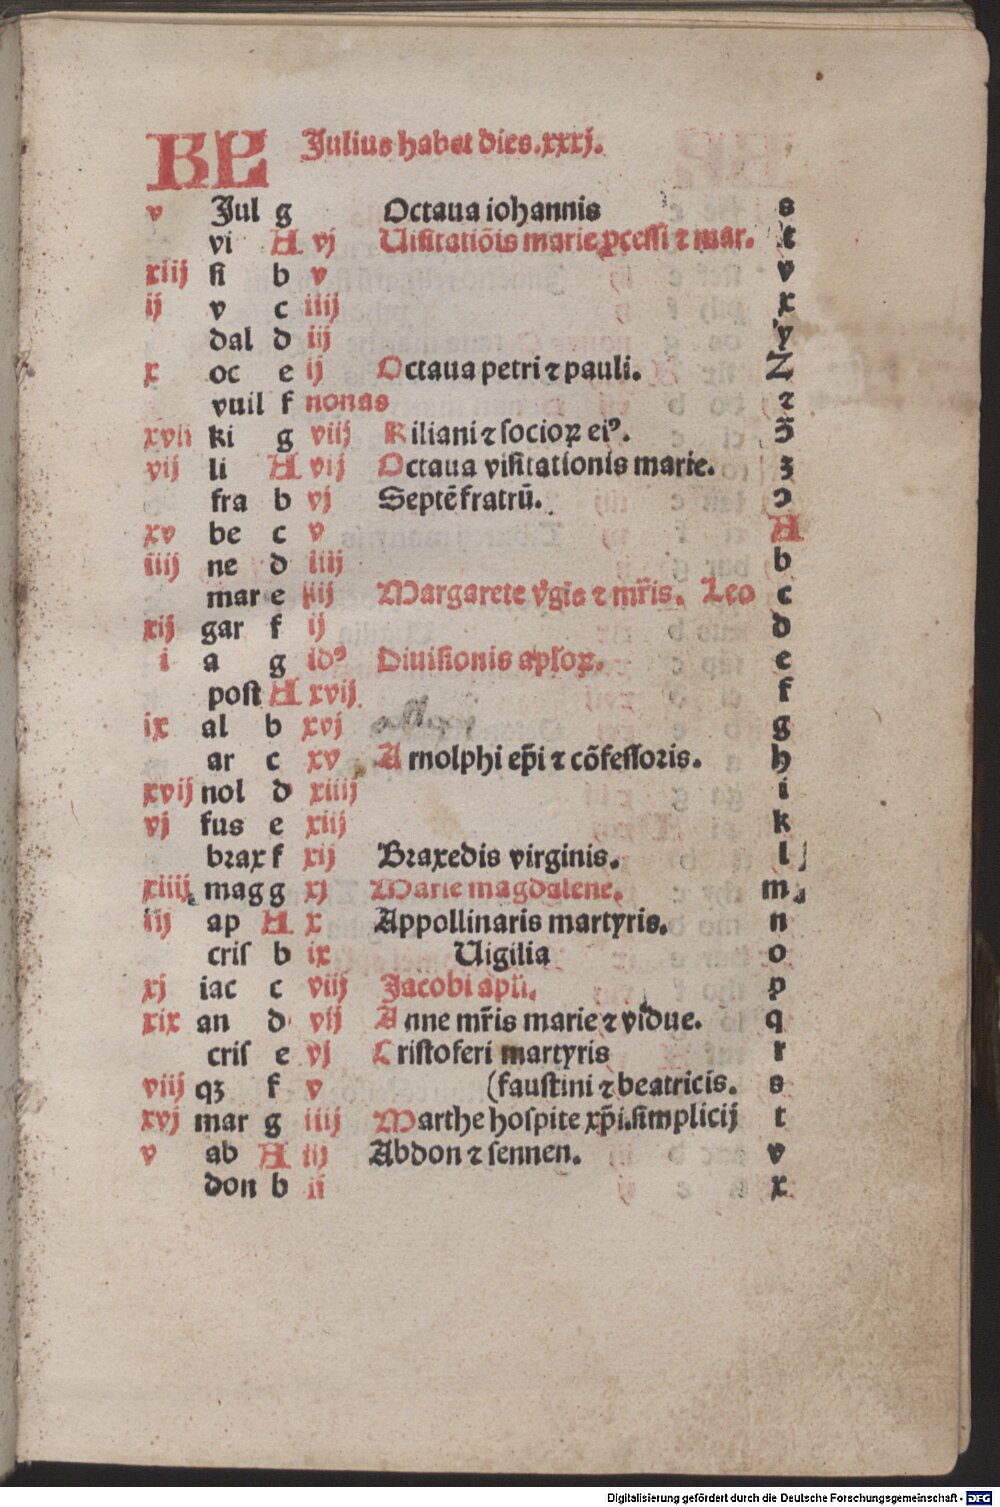 KL Julius habet dies.xxxj.
v Jul g Octaua iohannis s
vi A vj Uisitatiõis marie ꝓcessi ⁊ mar. t
xiij si b v v
ij v c iiij x
dal d iij y
x oc e ij Octaua petri ⁊ pauli. Z
vuil f nonas ⁊
xvij ki g viij Kiliani ⁊ socioꝝ eiꝰ.
vij li A vij Octaua visitationis marie. ꝫ
fra b vj Septẽ fratrũ. ɔ
xv be c v A
iiij ne d iiij b
mar e iij Margarete v̄gīs ⁊ mr̄is. Leo c
xij gar f ij d
i a g idꝰ Diuisionis apl̄oꝝ. e
post A xvij f
ix al b xvj g
ar c xv Arnolphi ep̄i ⁊ cõfessoris. h
xvij nol d xiiij i
vj fus e xiij k
brax f xij Braxedis virginis. l
xiiij mag g xj Marie magdalene. m
iij ap A x Appollinaris martyris. n
cris b ix Uigilia o
xj iac c viij Jacobi apl̄i. p
xix an d vij Anne mr̄is marie ⁊ vidue. q
cris e vj Cristoferi martyris r
viij qꝫ f v (faustini ⁊ beatricis. s
xvj mar g iiij Marthe hospite xp̄i.simplicij t
v ab A iij Abdon ⁊ sennen. v
don b ii x
Digitalisierung gefördert durch die Deutsche Forschungsgemeinschaft - DFG